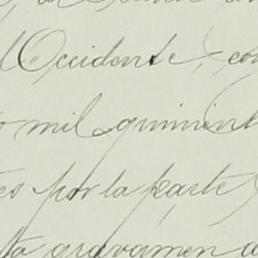 l Occidente, con
mil quinient
es por la parte
ta gravamen a